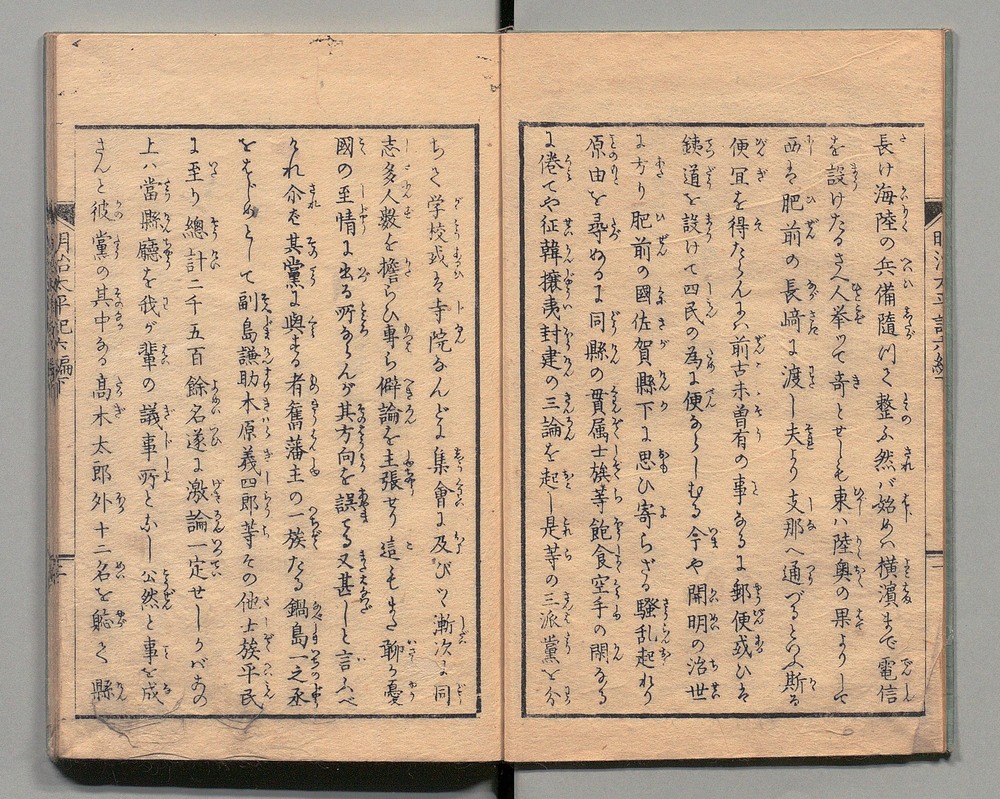 長け海陸の兵備隨つて整ふ然バ始めハ横濱まで電信
を設けたるさへ人挙ツて奇とせしも東ハ陸奥の果よりして
西は肥前の長﨑に渡し夫より支那へ通づるといふ斯る
便宜を得たらんハ前古未曽有の事なるに郵便或ひは
銕道を設けて四民の為に便ならしむる今や開明の治世
に方り肥前の國佐賀縣下に思ひ寄らざる騒乱起れり
原由を尋ぬるに同縣の貫属士族等飽食空手の閑なる
に倦てや征韓攘夷封建の三論を起し是等の三派黨を分
ちて学校或は寺院なんどに集會に及びつ漸次に同
志多人数を擔らひ專ら僻論を主張せり這もまた聊か憂
國の至情に出る所ならんが其方向を誤る又甚しと言ふべ
けれ尒れ共其黨に與する者舊藩主の一族たる鍋島一之丞
をはじめとして副島謙助木原義四郎等その他士族平民
に至り總計二千五百餘名遂に激論一定せしかバその
上ハ當縣廳を我が輩の議事所となし公然と事を成
さんと彼黨の其中なる髙木太郎外十二名を《》て縣
明治太平記六編下